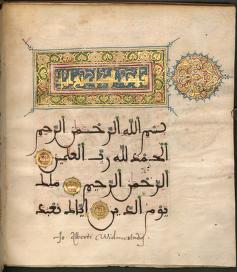 بسم الله الرحمن الرحيم
الحمد لله رب العلمين
الرحمن الرحيم ملك
يوم الدين إياك نعبد
Jo. Alberti